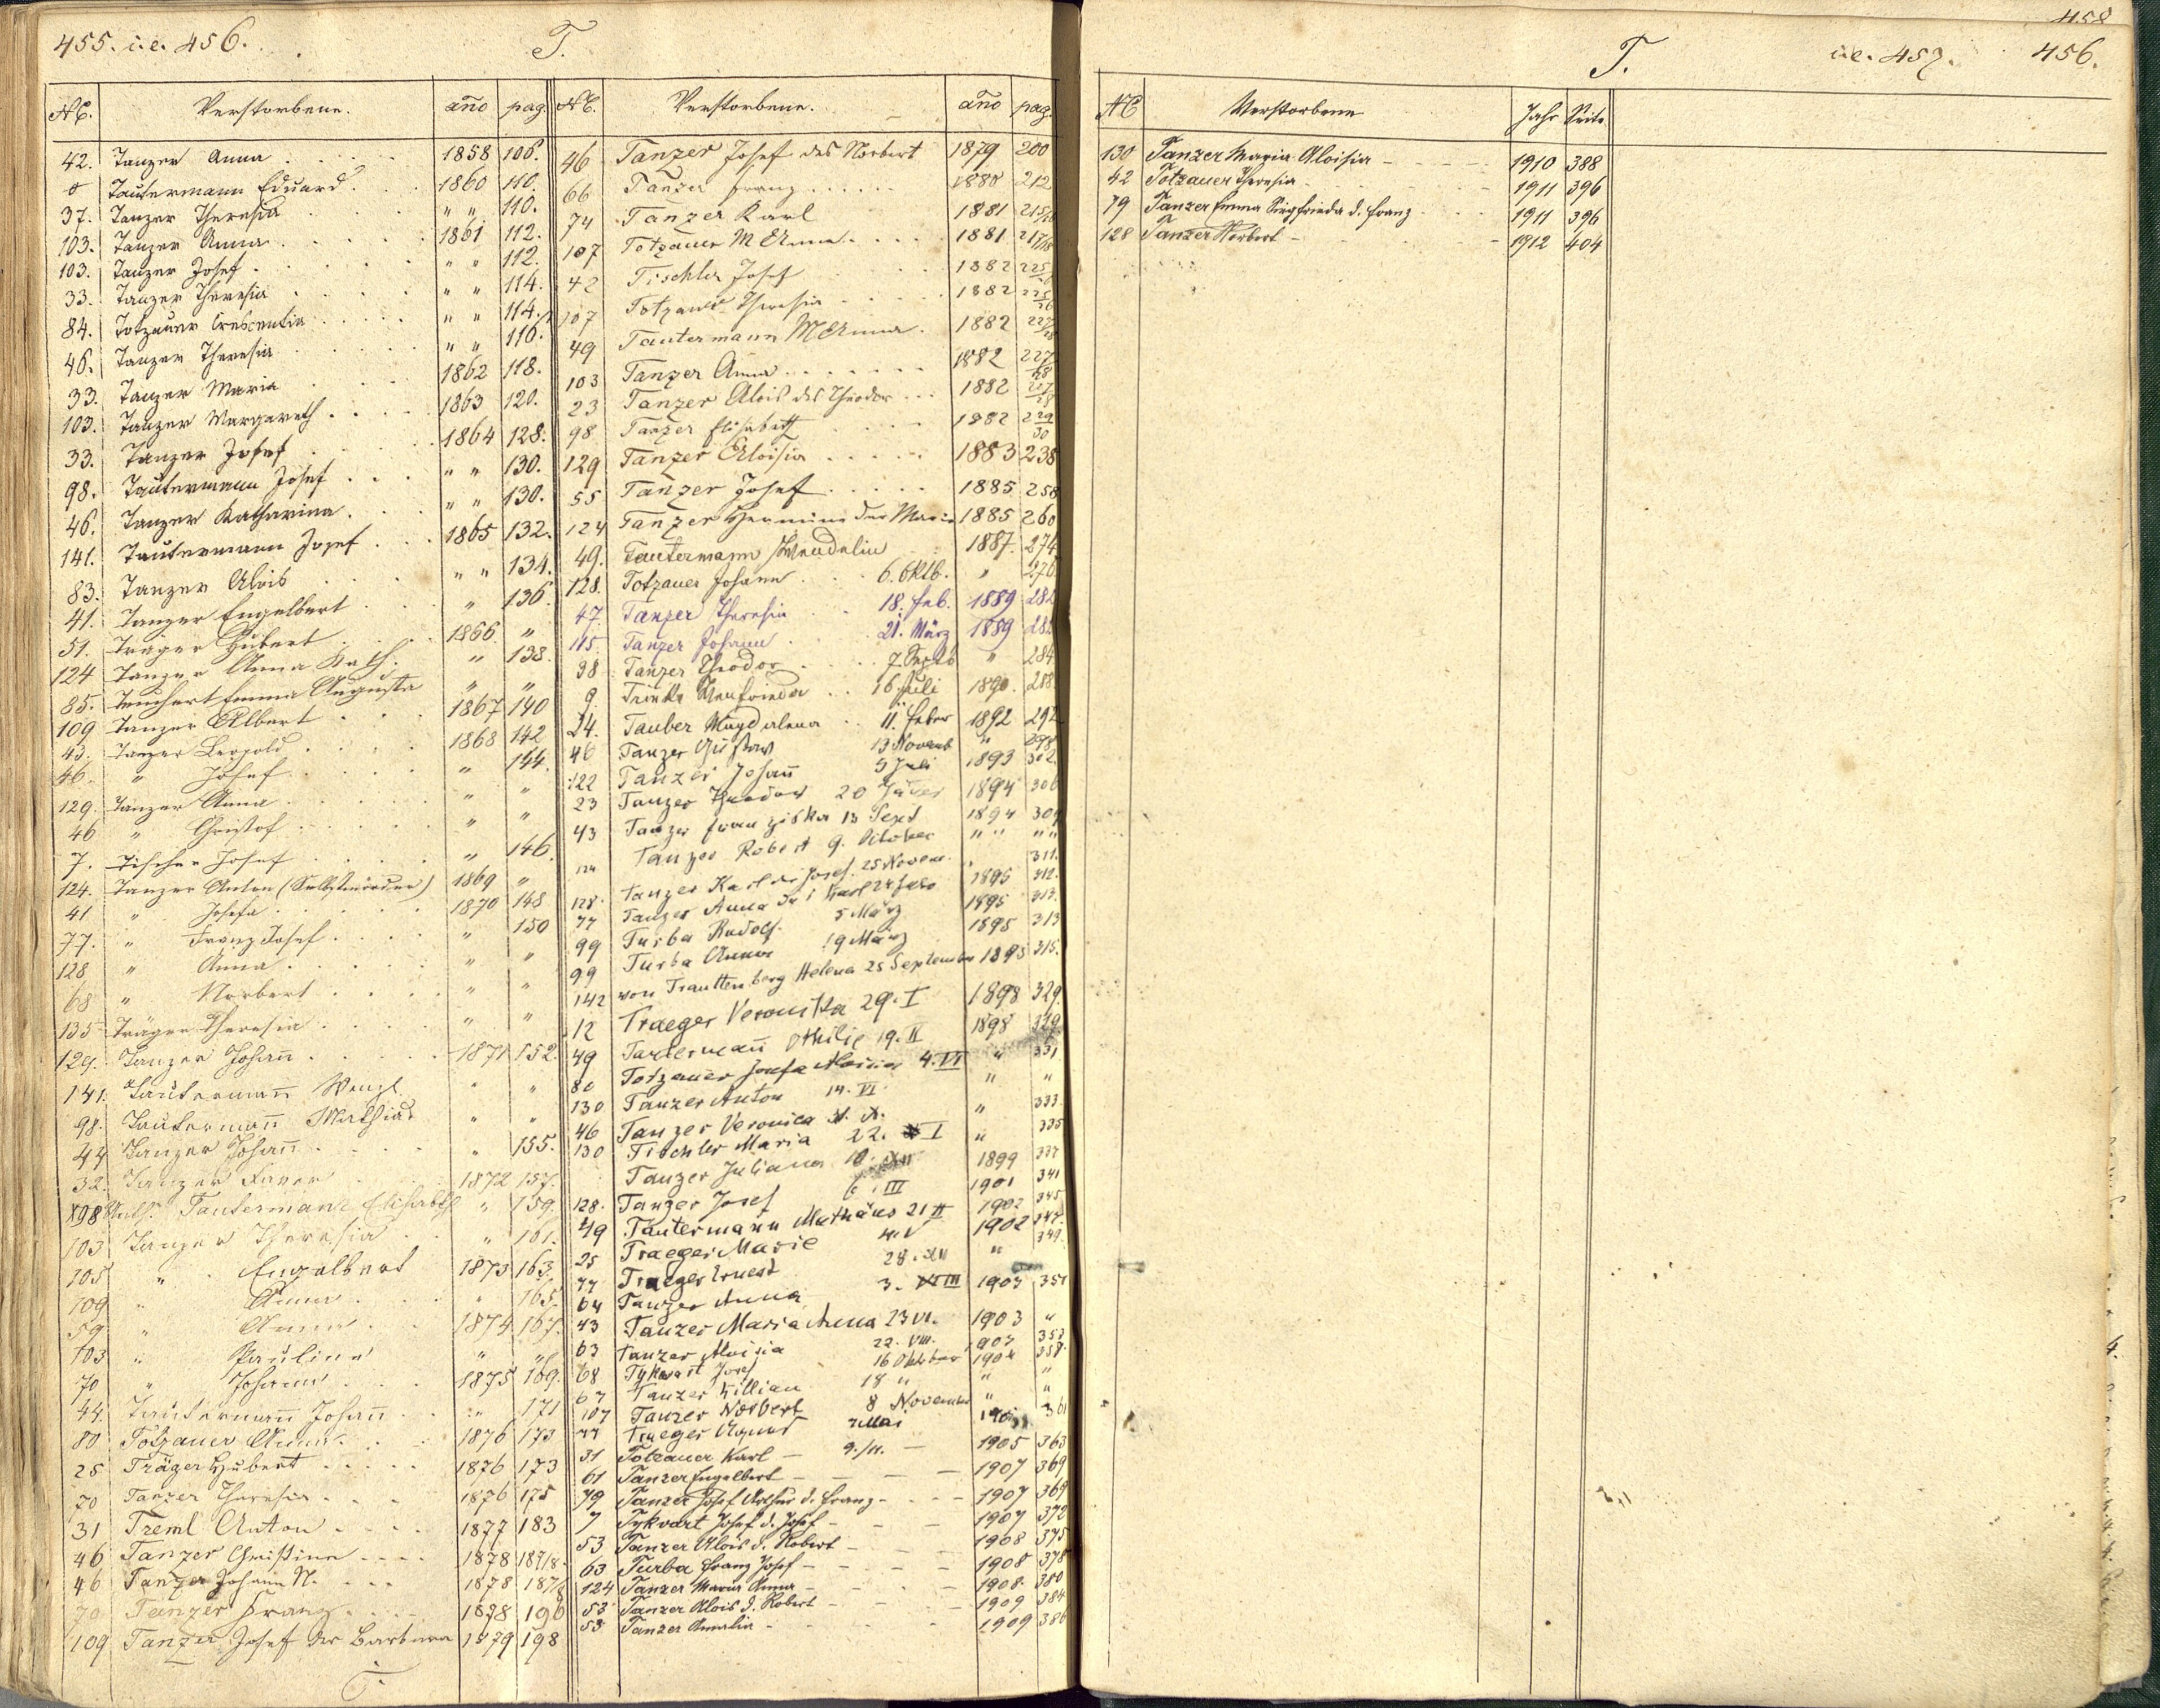 455. i.e. 456.
T.
NC. Verstorbene. año pag.
42. Tanzer Anna 1858 106.
8 Tautermann Eduard 1860 110.
37. Tanzer Theresia " " 110.
103. Tanzer Anna 1861 112.
103. Tanzer Josef " " 112.
33. Tanzer Theresia " " 114.
84. Totzauer Crescentia " " 114.
46. Tanzer Theresia " " 116.
33. Tanzer Maria 1862 118.
103. Tanzer Margareth 1863 120.
33. Tanzer Josef 1864 128.
98. Tautermann Josef " " 130.
46. Tanzer Katharina " " 130.
141. Tautermann Josef 1865 132.
83. Tanzer Alois " " 134.
41. Tanzer Engelbert " 136.
51. Träger Hubert 1866 "
124 Tanzer Anna Kath. " 138.
85. Teuchert Emma Augusta " "
109 Tanzer Albert 1867 140
43. Tanzer Leopold 1868 142
46. " Josef " 144.
129. Tanzer Anna " "
46 " Christof " "
7. Tischer Josef " 146.
124. Tanzer Anton (Selbstmörder) 1869 "
41 " Josefa 1870 148
77. " Franz Josef " 150
128 " Anna " "
68 " Norbert " "
135 Träger Theresia " "
129. Tanzer Johañ 1871 152.
141. Tautermañ Wenzl " "
98. Tautermañ Mathias " "
44 Tanzer Johañ " 155.
32. Tanzer Xaver 1872 157.
98 Tautermann Elisabeth " 159.
103 Tanzer Theresia " 161.
105 " Engelbert 1873 163.
109 " Anna " 165.
59 " Anna 1874 167.
103 " Pauline " "
70 " Johann 1875 169.
44. Tautermañ Johañ " 171
80 Totzauer Anna 1876 173
25 Träger Hubert 1876 173
70 Tanzer Theresia 1876 175
31 Treml Anton 1877 183
46 Tanzer Christine 1878 187/8.
46 Tanzer Johann N. 1878 187/8
70 Tanzer Franz 1878 196
109 Tanzer Josef der Barbara 1879 198
T.
NC. Verstorbene. año pag.
46 Tanzer Josef des Norbert 1879 200
66 Tanzer Franz 1880 212
74 Tanzer Karl 1881 215/16
107 Totzauer M Anna 1881 217/18
42 Tischler Josef 1882 225
107 Totzauer Theresia 1882 225/26
49 Tautermann M Anna 1882 227/28
103 Tanzer Anna 1882 227/28
23 Tanzer Alois des Theodor 1882 227/28
98 Tanzer Elisabeth 1882 229/30
129 Tanzer Aloisia 1883 238
55 Tanzer Josef 1885 258
124 Tanzer Hermine der Maria 1885 260
49. Tautermann Wendelin 1887. 274
128. Totzauer Johann 6. Oktb. " 276.
47. Tanzer Theresia 18. Feb. 1889 282
115. Tanzer Johann 21. März 1889 282
98 Tanzer Theodor 7. Septb " 284
9. Trinks Manfrieda 16 Juli 1890. 288.
24. Tauber Magdalena 11. Feber 1892 292
46 Tanzer Gustav 13 Novemb " 298
122 Tanzer Johañ 5 Juli 1893 302.
23 Tanzer Theodor 20 Jäner 1894 306
43 Tanzer Franziska 13 Sept 1894 309
Tanzer Robert 9. October " " " "
124 Tanzer Karl des Josef. 25 Novem. " 311.
128. Tanzer Anna des Karl 24 Febr 1895 312.
77 Turba Rudolf. 5 März 1895 313.
99 Turba Anna 19 März 1895 313
99
142 von Trauttenberg Helena 25 September 1895 315.
12 Traeger Veronika 29. I 1898 329.
49 Tautermañ Othilie 19. II 1898 329.
80 Totzauer Josefa Aloisia 4. VI " 331
130 Tanzer Anton 14. VI. " "
46 Tanzer Veronica X. " 333.
130 Tischler Maria 22. I " 335
Tanzer Juliana 10. XII 1899 337
128. Tanzer Josef III 1901 341
49 Tautermann Mathäus 21 II 1902 345
25 Traeger Marie 1902 347.
77 Traeger Ernest 28. XII " 349.
64 Tanzer Anna 3. III 1903 351
43 Tanzer Maria Anna 23 VI. 1903 "
63 Tanzer Aloisia 22. VIII. 1903 353
68 Tykwart Josef 16 Oktober 1904 358.
67 Tanzer Killian 18 " " "
107 Tanzer Norbert 8 November " "
77 Traeger Agnes 7 Mai 361
31 Totzauer Karl 9./11. 1905 363
61 Tanzer Engelbert 1907 369
79 Tanzer Josef Arthur d. Franz 1907 369
7 Tykvart Josef d. Josef 1907 372
53 Tanzer Alois d. Robert 1908 375
63 Turba Franz Josef 1908 378
124 Tanzer Maria Anna 1908. 380
53 Tanzer Alois d. Robert 1909 384
53 Tanzer Amalia 1909 386
458
T. i.e. 457. 456.
NC Verstorbene Jahr Seite
130 Tanzer Maria Aloisia 1910 388
42 Totzauer Theresia 1911 396
79 Tanzer Emma Siegfrieda d. Franz 1911 396
128 Tanzer Norbert 1912 404